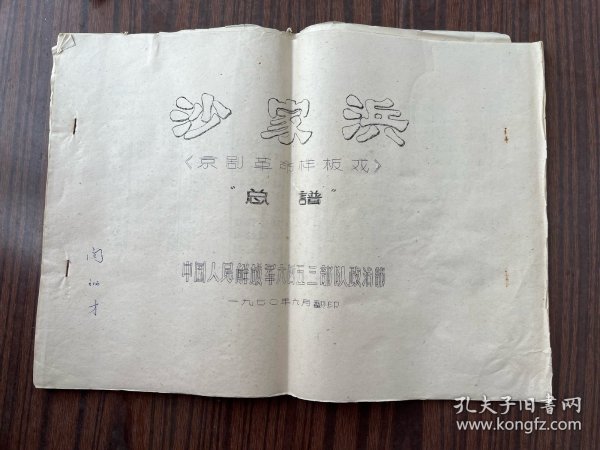 沙家浜
〈京剧革命样板戏〉
“总谱”
中国人民解放军六四五三部队政治部
一九七〇年六月翻印
孔夫子旧书网
www.kongfz.com